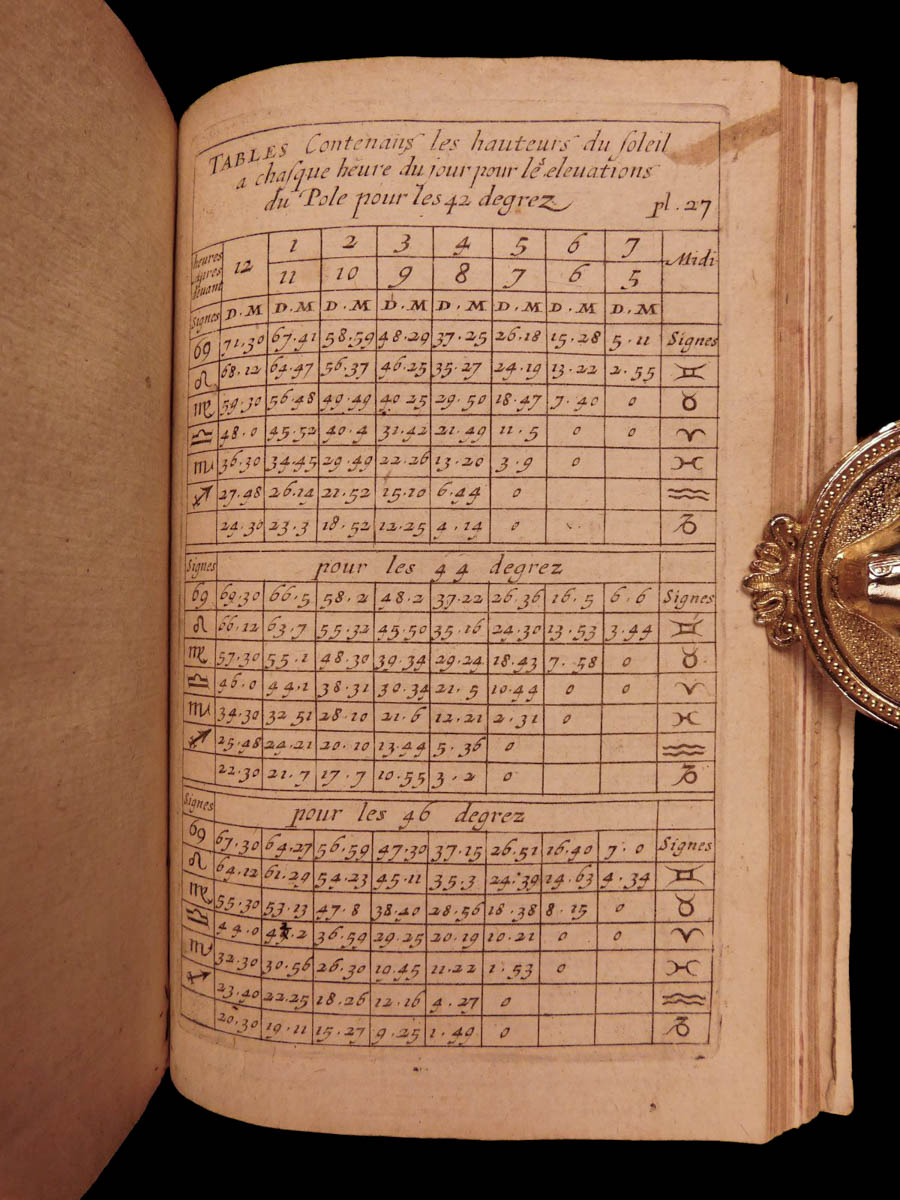 TABLES Contenans les hauteurs du soleil
a chasque heure du jour pour les elevations
du Pole pour les 42 degrez
pl. 27
heures apres devant 12 1 2 3 4 5 6 7 Midi
11 10 9 8 7 6 5
Signes D.M D.M D.M D.M D.M D.M D.M D.M
♋ 71.30 67.41 58.59 48.29 37.25 26.18 15.28 5.11 Signes
♌ 68.12 64.47 56.37 46.25 35.27 24.19 13.22 2.55 ♊
♍ 59.30 56.48 49.49 40 25 29.50 18.47 7.40 0 ♉
♎ 48.0 45.52 40.4 31.42 21.49 11.5 0 0 ♈
♏ 36.30 34.45 29.49 22.26 13.20 3.9 0 ♓
♐ 27.48 26.14 21.52 15.10 6.44 0 ♒
24.30 23.3 18.52 12.25 4.14 0 ♑
Signes pour les 44 degrez
♋ 69.30 66.5 58.2 48.2 37.22 26.36 16.5 6.6 Signes
♌ 66.12 63.7 55.32 45.50 35.16 24.30 13.53 3.44 ♊
♍ 57.30 55.1 48.30 39.34 29.24 18.43 7.58 0 ♉
♎ 46.0 44.1 38.31 30.34 21.5 10.44 0 0 ♈
♏ 34.30 32 51 28.10 21.6 12.21 2.31 0 ♓
♐ 25.48 24.21 20.10 13.44 5.36 0 ♒
22.30 21.7 17.7 10.55 3.2 0 ♑
Signes pour les 46 degrez
♋ 67.30 64.27 56.59 47.30 37.15 26.51 16.40 7.0 Signes
♌ 64.12 61.29 54.23 45.11 35.3 24.39 14.63 4.34 ♊
♍ 55.30 53.13 47.8 38.40 28.56 18.38 8.15 0 ♉
♎ 44.0 42.2 36.59 29.25 20.19 10.21 0 0 ♈
♏ 32.30 30.56 26.30 19.45 11.22 1.53 0 ♓
♐ 23.40 22.25 18.26 12.16 4.27 0 ♒
20.30 19.11 15.27 9.25 1.49 0 ♑